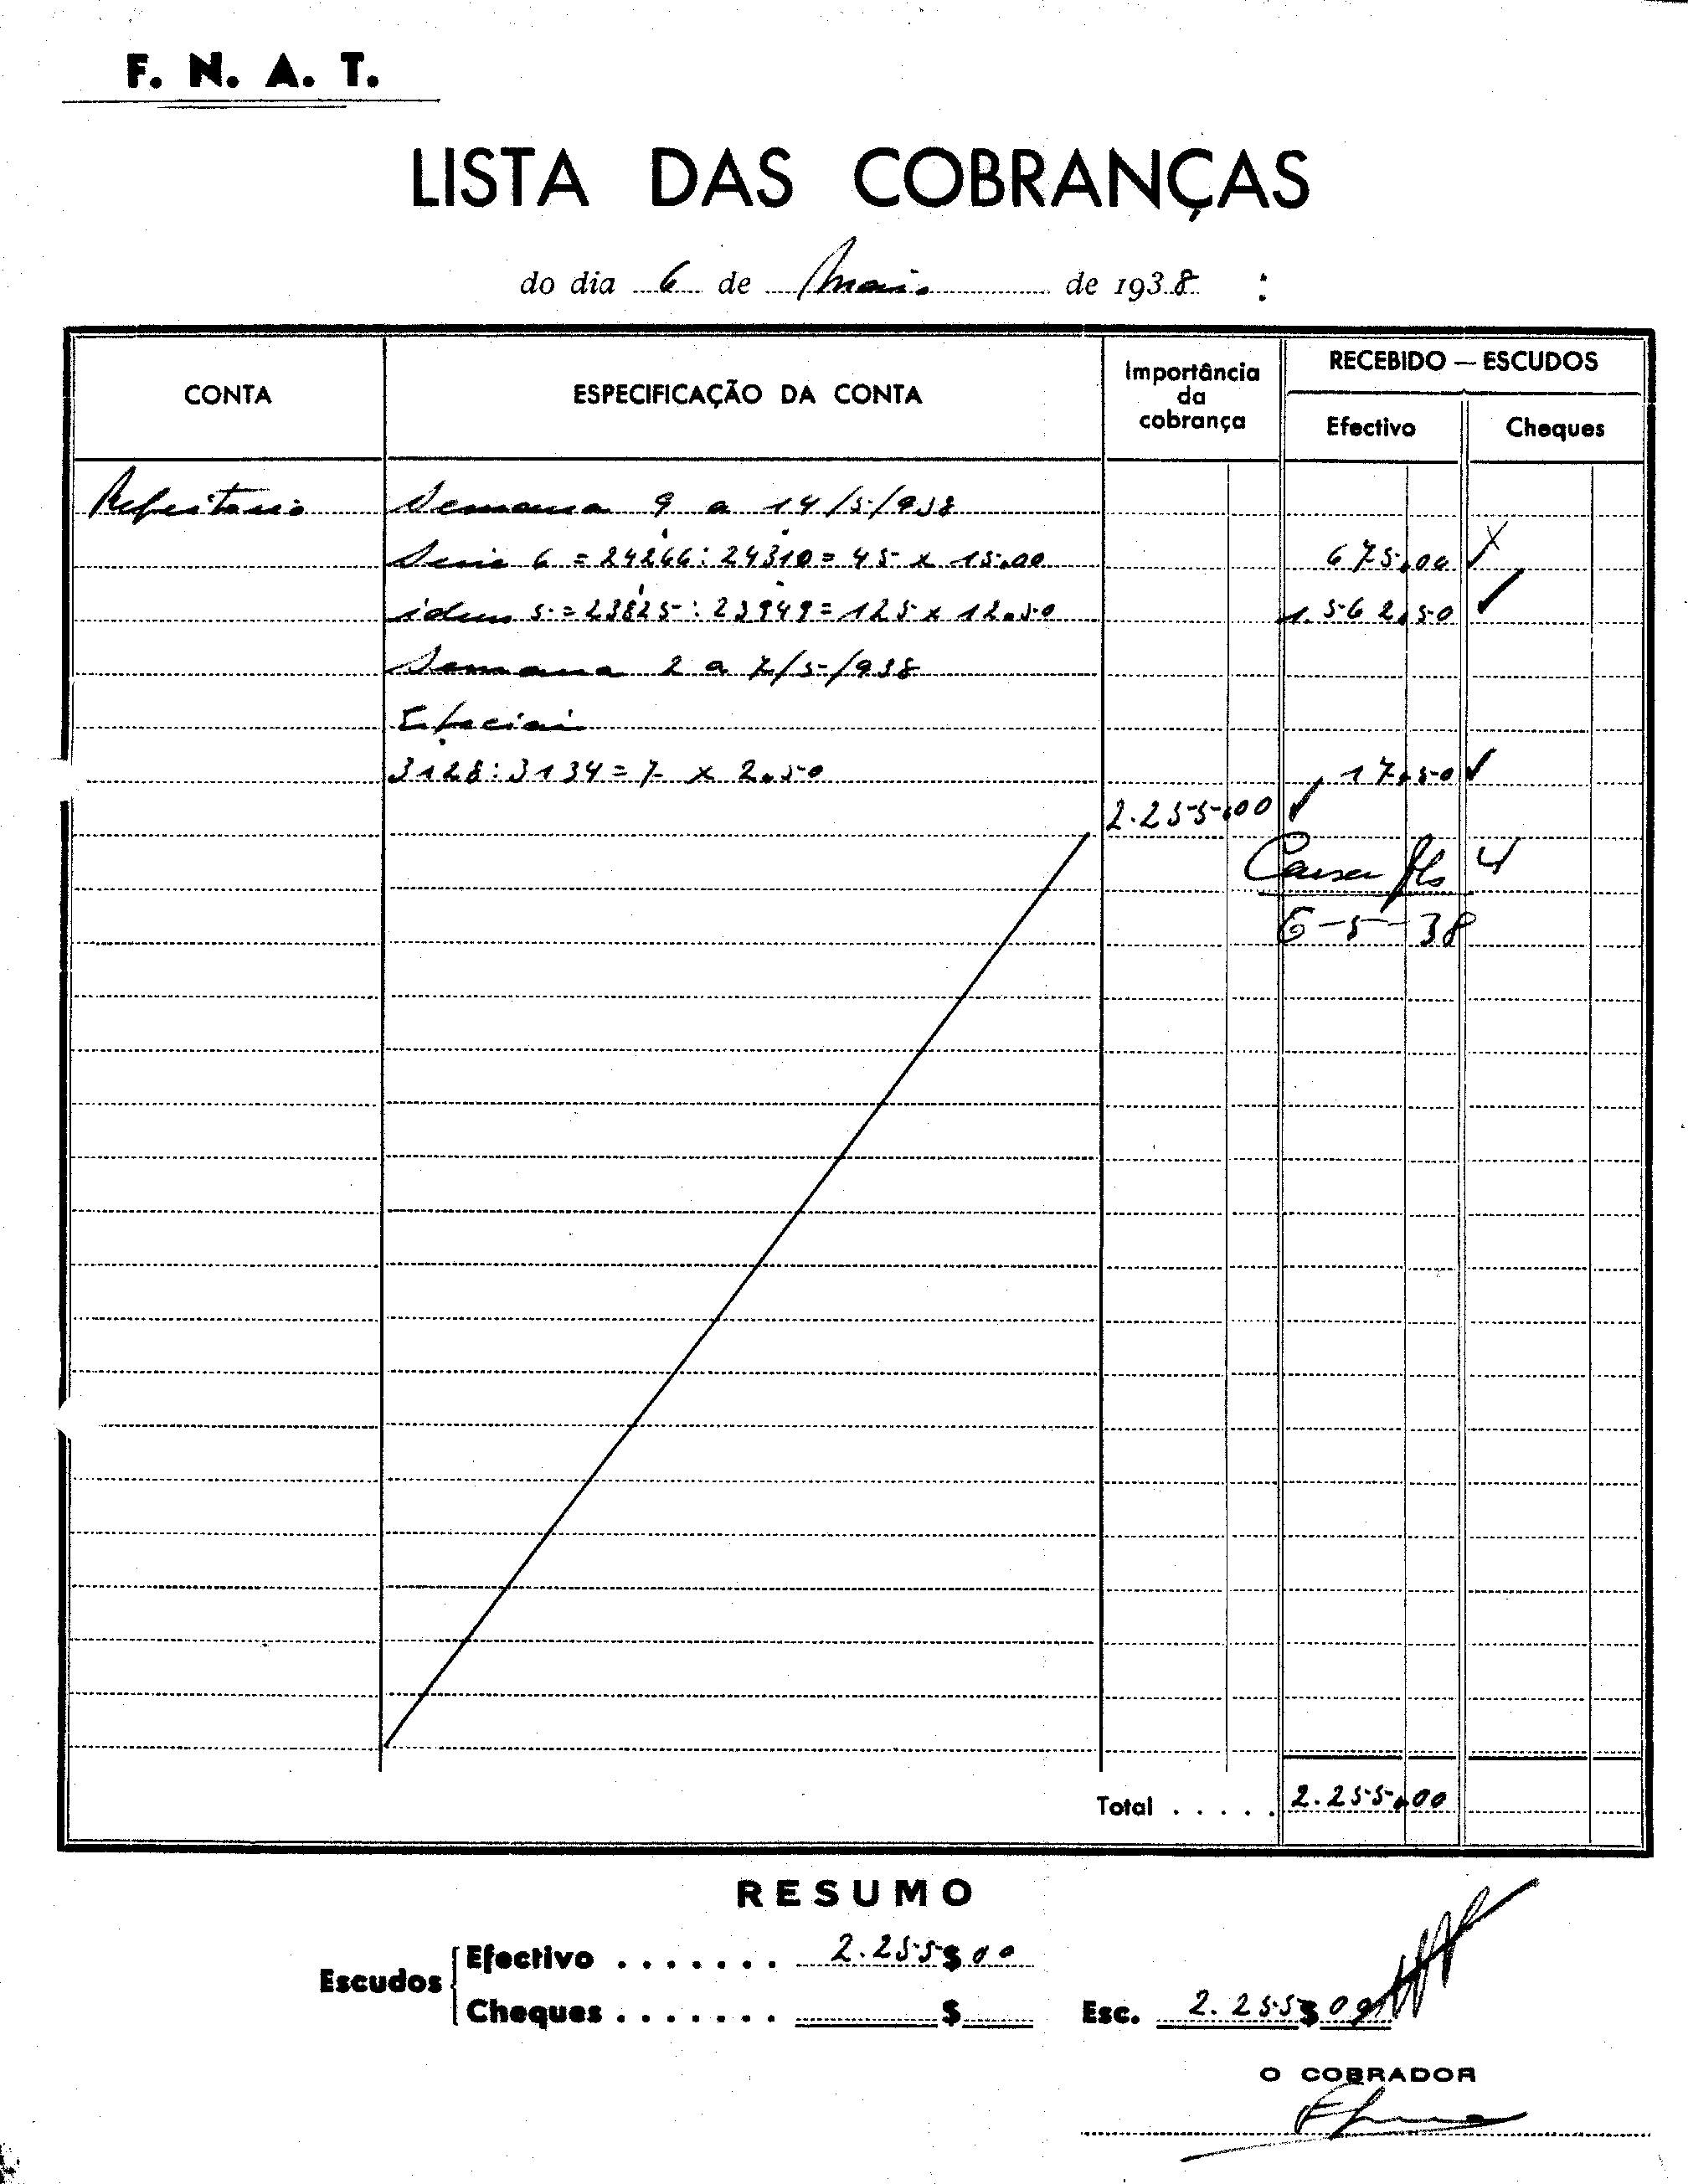 F. N. A. T.
LISTA DAS COBRANÇAS
do dia 6 de Maio de 1938
CONTA
ESPECIFICAÇÃO DA CONTA
Importância da cobrança
RECEBIDO — ESCUDOS
Efectivo
Cheques
Refeitorio Semana 9 a 14/5/938
Serie 6 = 24266 : 24310 = 45 x 15.00 675.00
idem 5 = 23825 : 23949 = 125 x 12.50 1.562.50
Semana 2 a 7/5/938
Especiai
3128 : 3134 = 7 x 2.50 17.50
2.255.00
Caixa fls 4
6-5-38
Total . . . . . 2.255.00
RESUMO
Escudos
Efectivo . . . . . . . 2.255$00
Cheques . . . . . . . $
Esc. 2.255$00
O COBRADOR